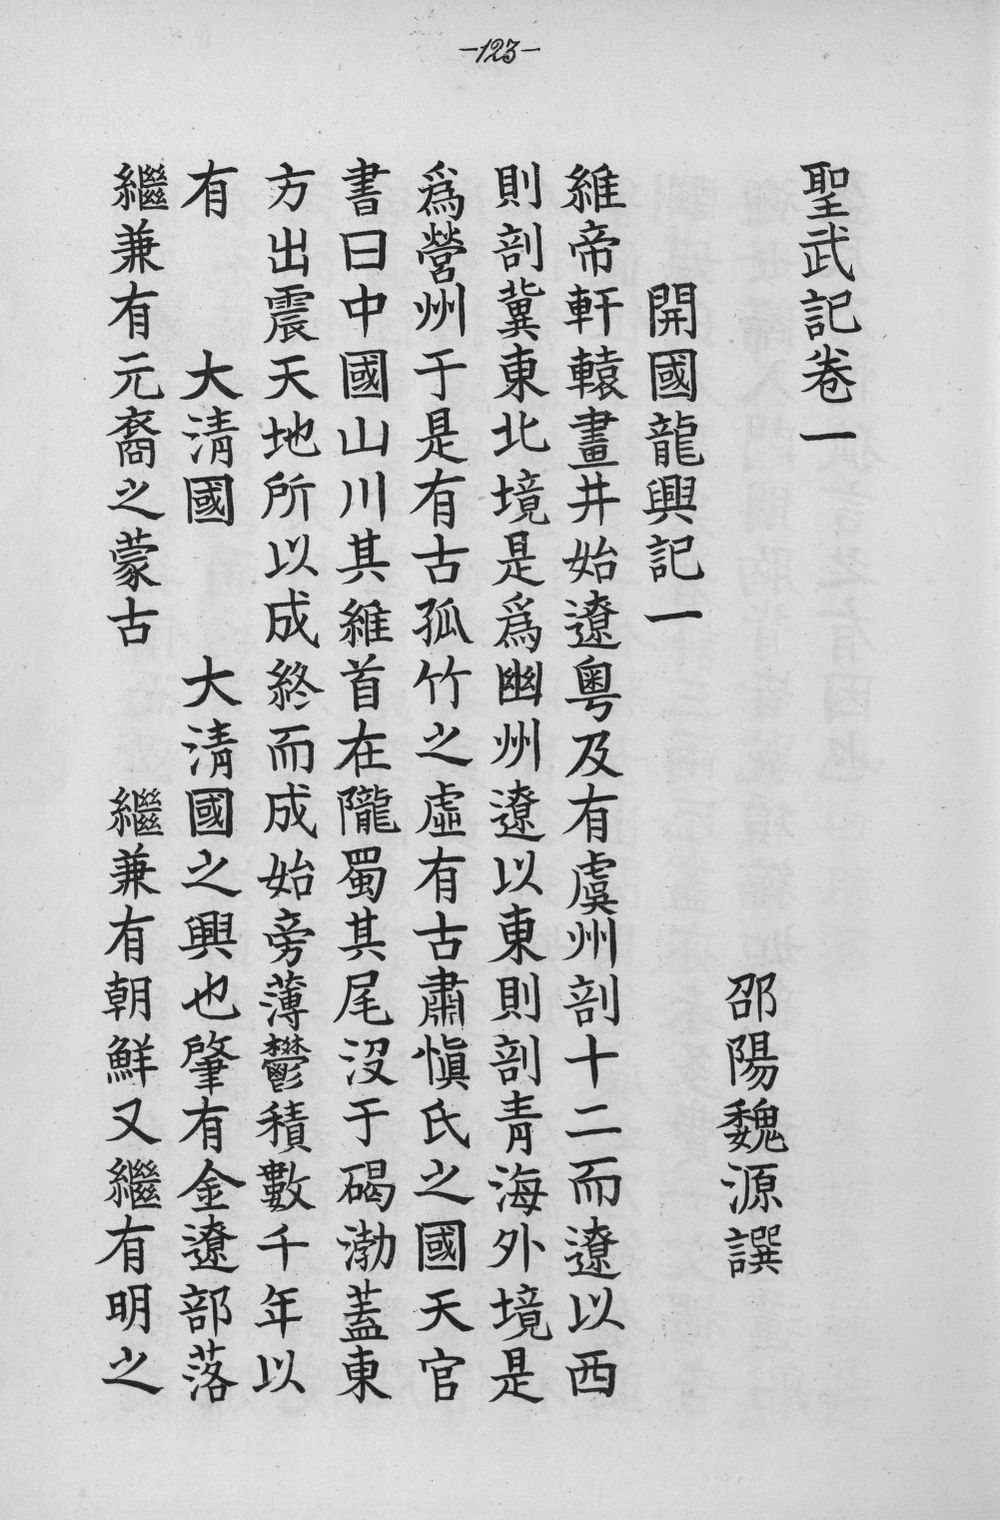 -123-
聖武記卷一
邵陽魏源譔
開國龍興記一
維帝軒轅畫井始遼粵及有虞州剖十二而遼以西
則剖冀東北境是爲幽州遼以東則剖青海外境是
爲營州于是有古孤竹之虛有古肅愼氏之國天官
書曰中國山川其維首在隴蜀其尾沒于碣渤蓋東
方出震天地所以成終而成始旁薄鬱積數千年以
有　　大清國　　大清國之興也肇有金遼部落
繼兼有元裔之蒙古　　繼兼有朝鮮又繼有明之